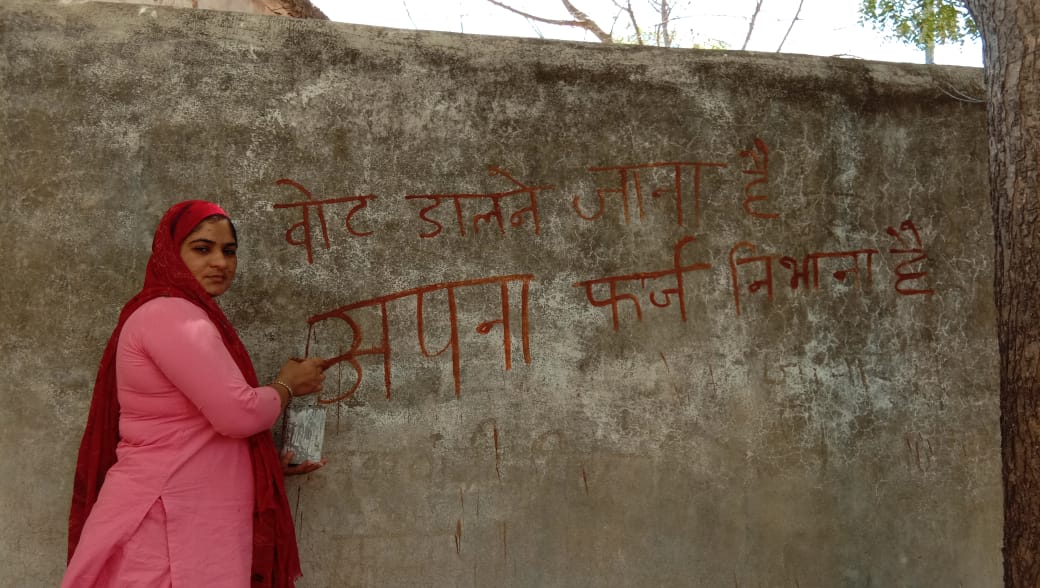 वोट डालने जाना है
अपना फर्ज निभाना है